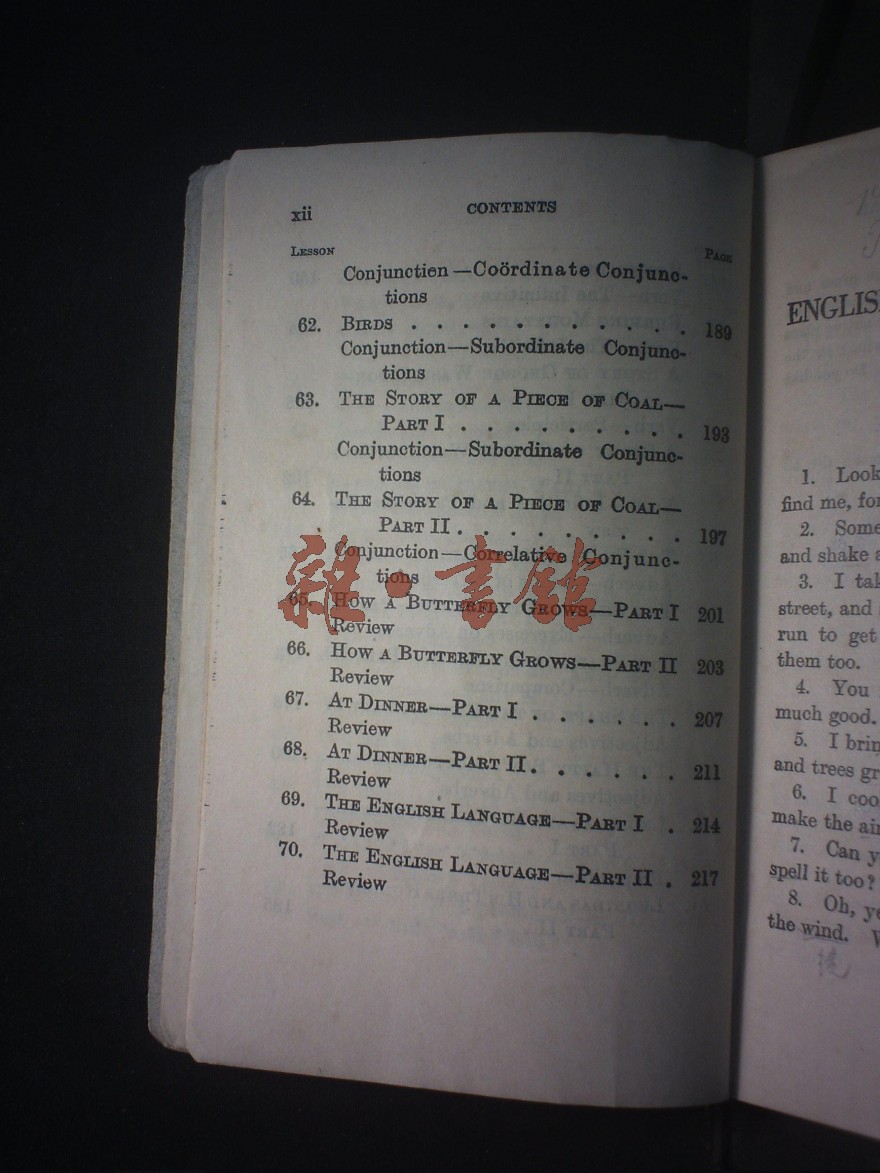 xii
CONTENTS
LESSON
PAGE
Conjunctien—Coördinate Conjunc-
tions
62. BIRDS . . . . . . . . . . . 189
Conjunction—Subordinate Conjunc-
tions
63. THE STORY OF A PIECE OF COAL—
PART I . . . . . . . . . 193
Conjunction—Subordinate Conjunc-
tions
64. THE STORY OF A PIECE OF COAL—
PART II . . . . . . . . . 197
Conjunction—Correlative Conjunc-
tions
65. HOW A BUTTERFLY GROWS—PART I 201
Review
66. HOW A BUTTERFLY GROWS—PART II 203
Review
67. AT DINNER—PART I . . . . . . 207
Review
68. AT DINNER—PART II . . . . . . 211
Review
69. THE ENGLISH LANGUAGE—PART I . 214
Review
70. THE ENGLISH LANGUAGE—PART II . 217
Review
雜·書館
1. Look
find me, fo
2. Some
and shake a
3. I tak
street, and
run to get
them too.
4. You
much good.
5. I brin
and trees gr
6. I coo
make the air
7. Can y
spell it too?
8. Oh, ye
the wind.